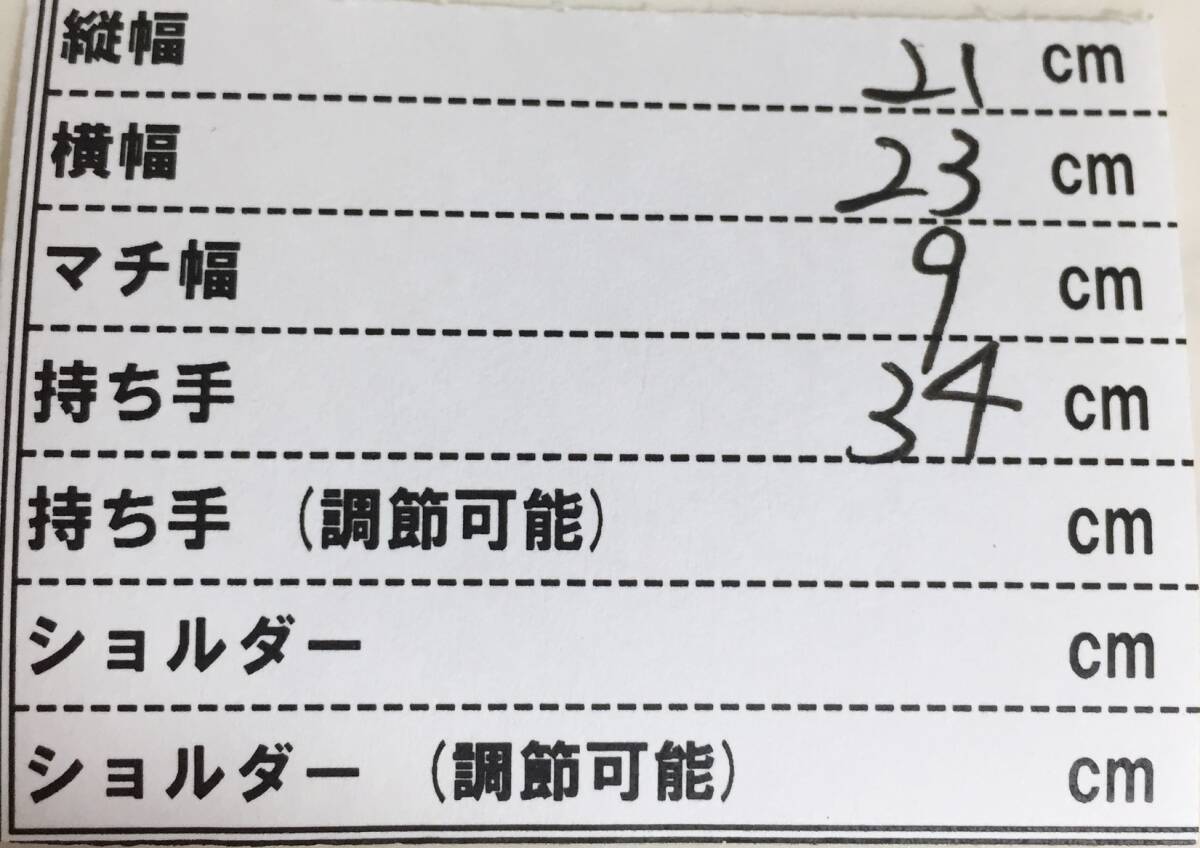 縦幅 21 cm
横幅 23 cm
マチ幅 9 cm
持ち手 34 cm
持ち手 (調節可能) cm
ショルダー cm
ショルダー (調節可能) cm